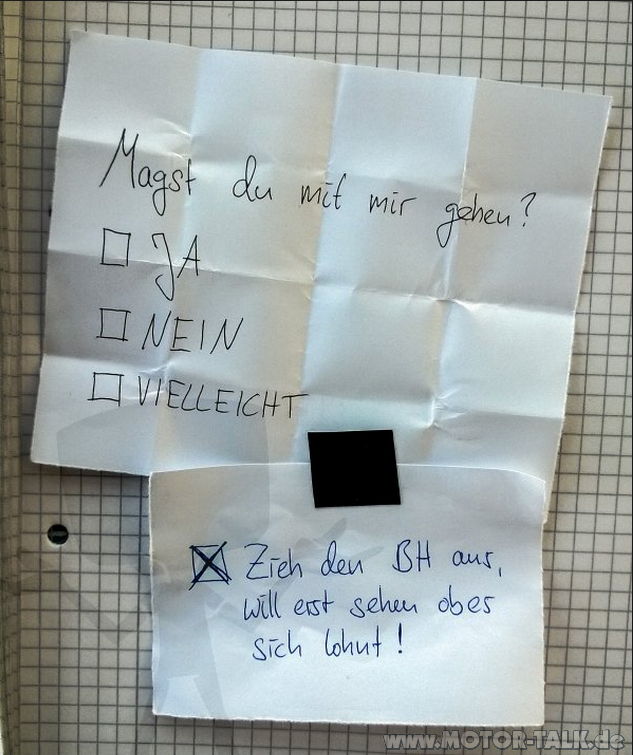 Magst du mit mir gehen?
☐ JA
☐ NEIN
☐ VIELLEICHT
☒ Zieh den BH aus,
will erst sehen ober
sich lohnt!
www.MOTOR-TALK.de